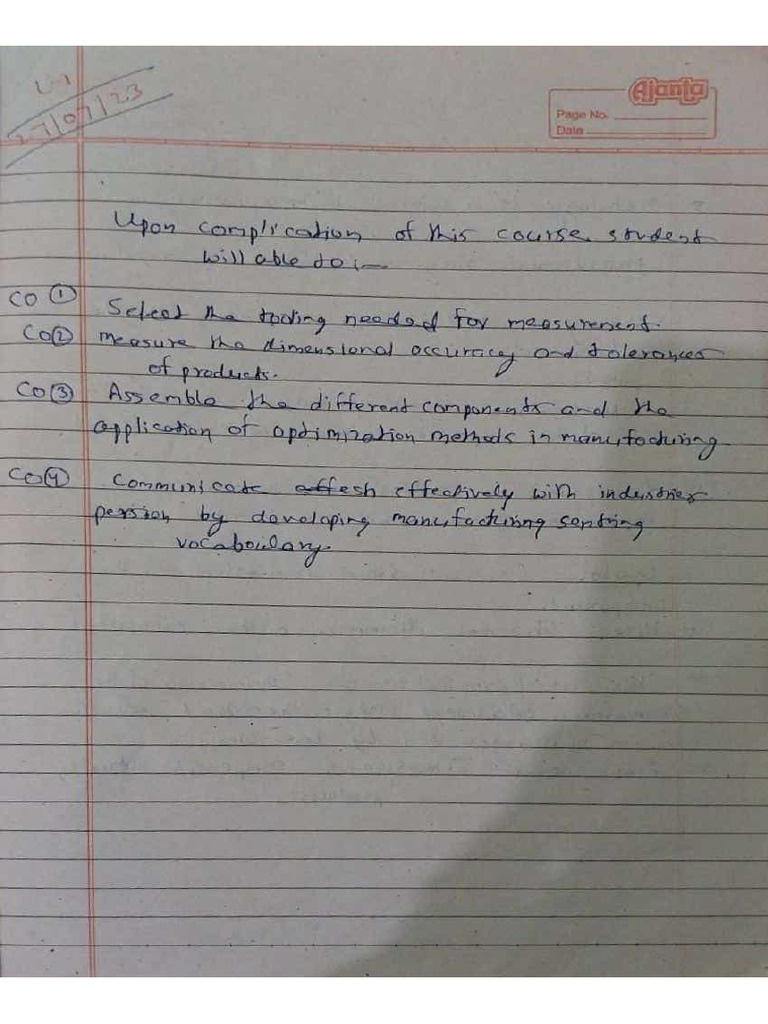 U-1
27/07/23
Ajanta
Page No.
Date
Upon complication of this course student
will able to :—
CO ① Select the tooling needed for measurement.
CO② measure the dimensional accuracy and tolerances
of products.
CO③ Assemble the different components and the
application of optimization methods in manufacturing
CO④ Communicate effectively with industries
persion by developing manufacturing
vocaboulary.